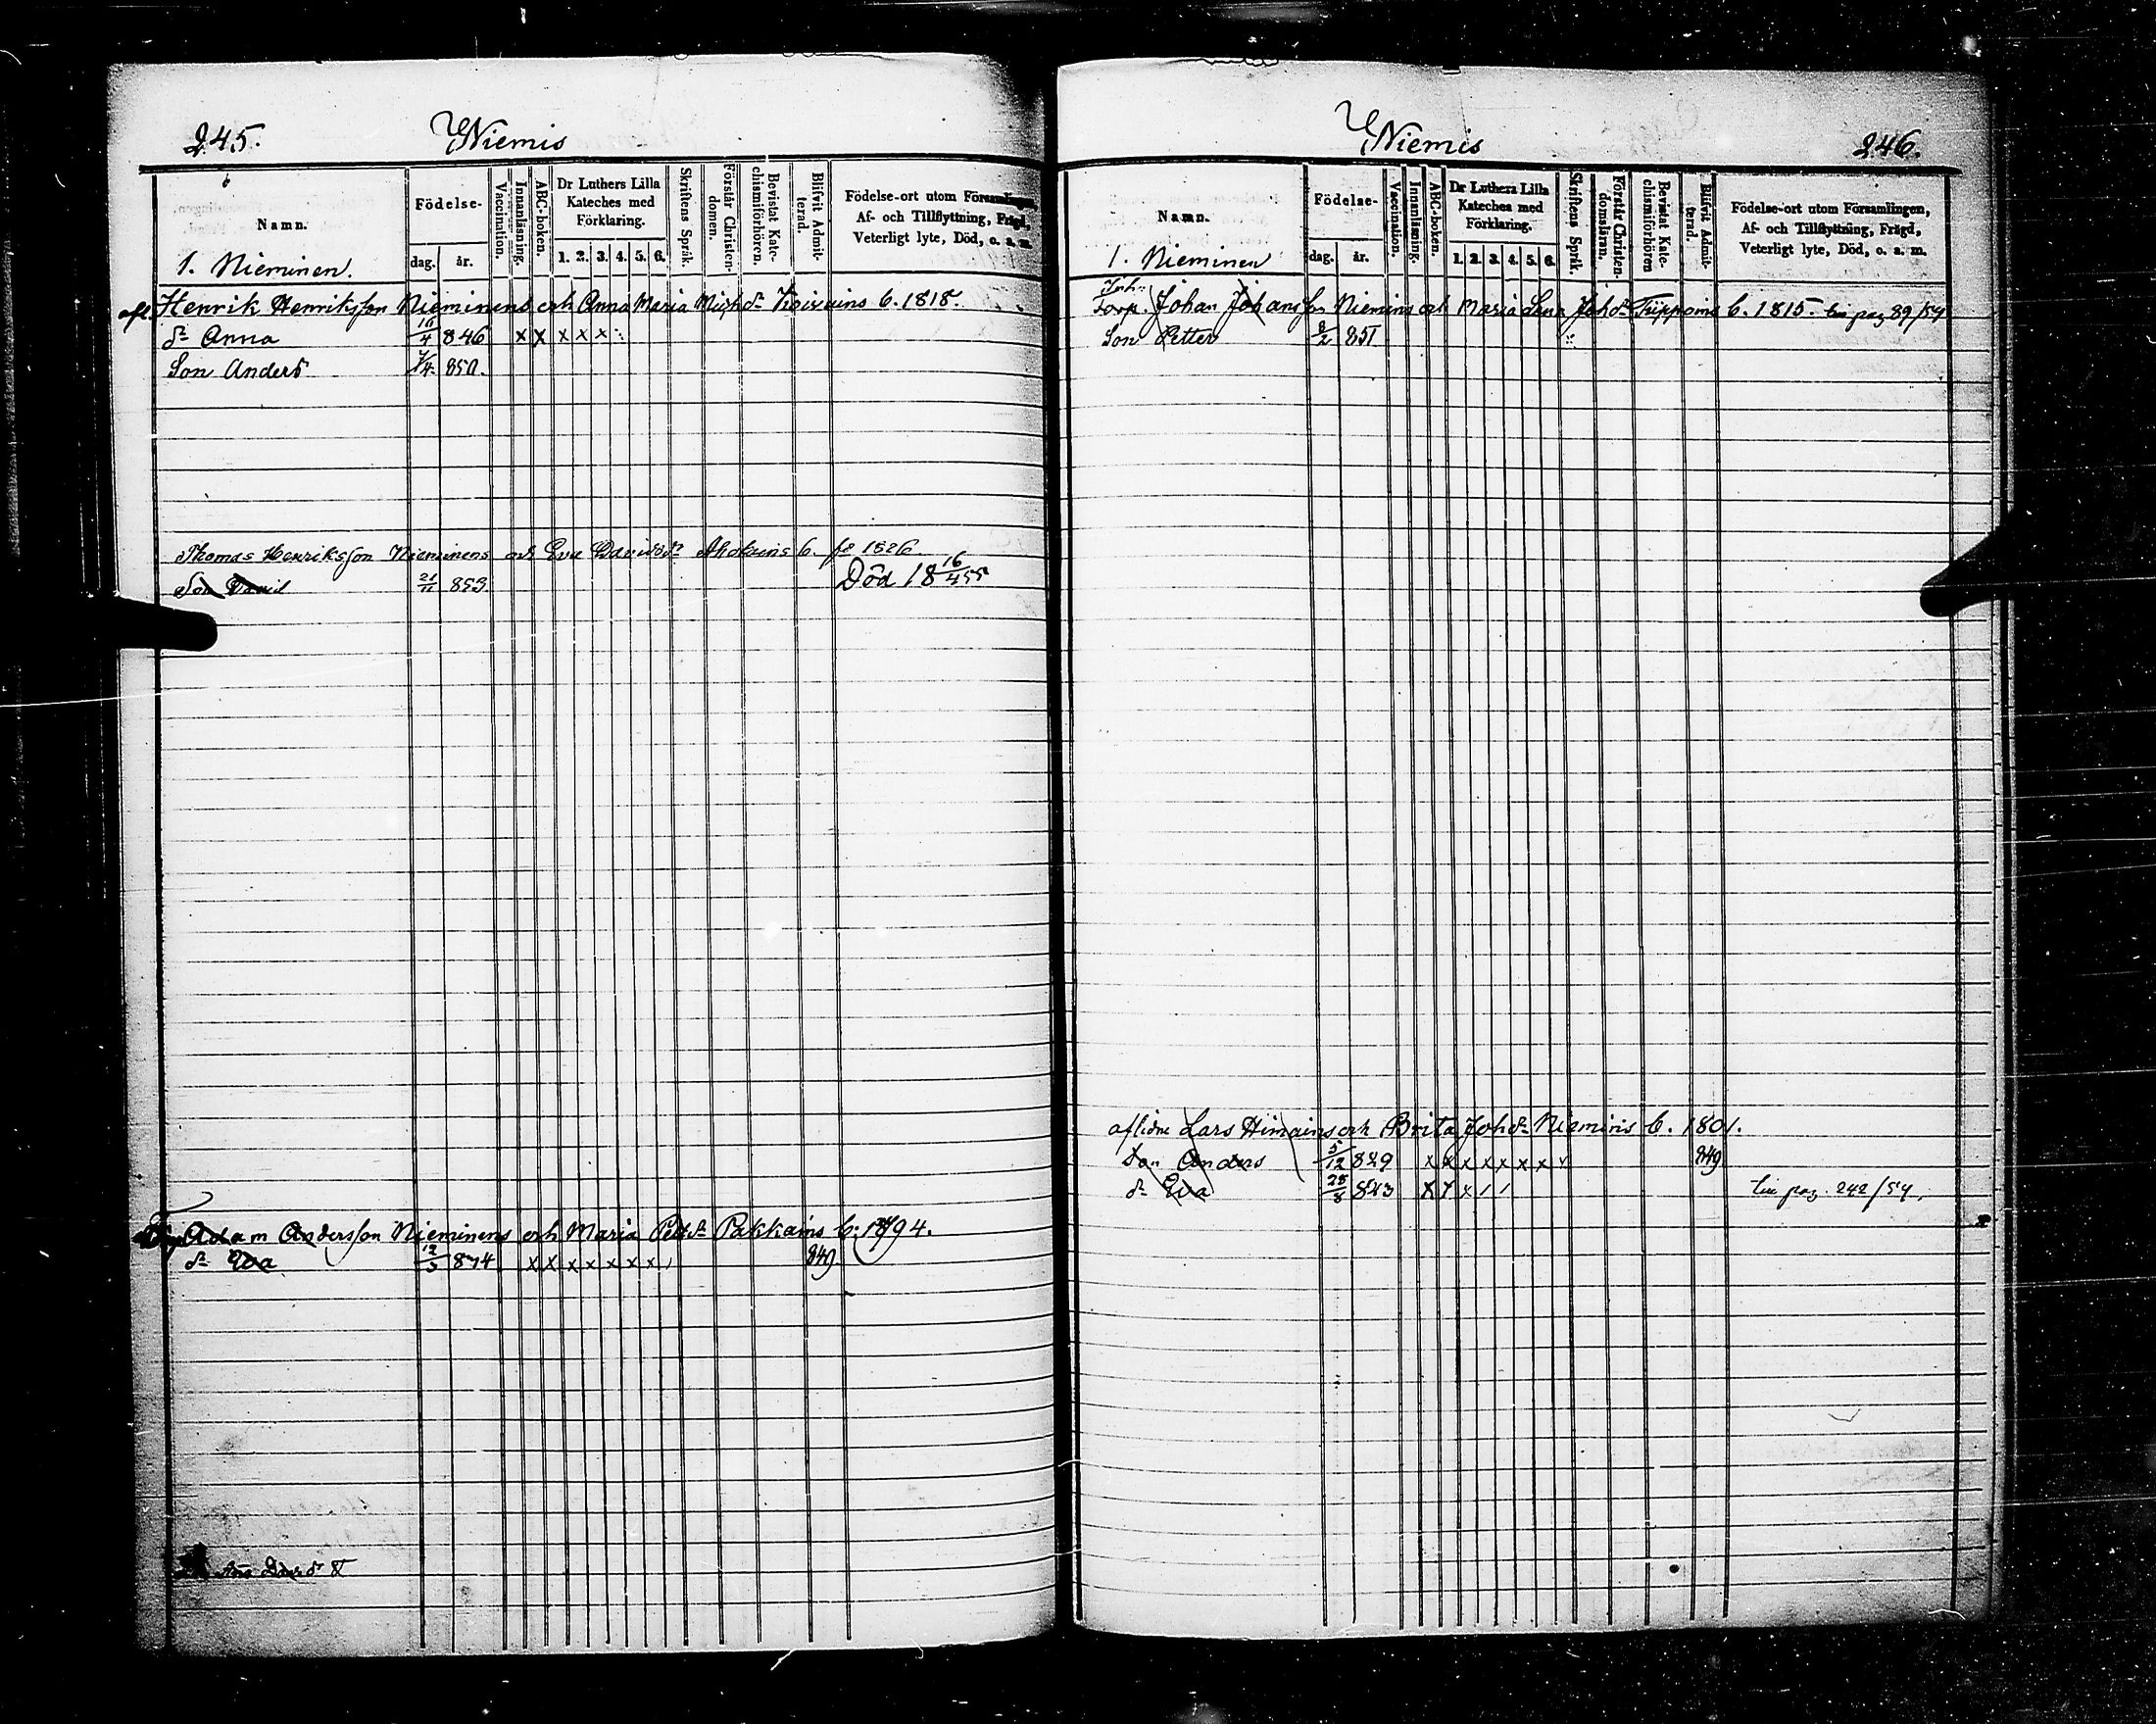 245. Niemis
Namn.
Födelse-
dag. år.
Vaccination.
Innanläsning.
ABC-boken.
Dr Luthers Lilla Kateches med Förklaring.
1. 2. 3. 4. 5. 6.
Skriftens Språk.
Förstår Christendomen.
Bevistat Katechismiförhören.
Blifvit Admitterad.
Födelse-ort utom Församlingen,
Af- och Tillflyttning, Frägd,
Veterligt lyte, Död, o. a. m.
1. Nieminen.
afl. Henrik Henriksson Nieminens och Anna Maria b. 1818.
dr Anna 16/4 846 x x x x x
Son Anders 7/4 850.
Thomas Henriksson Nieminens och Eva Davidsdr Ahokains b. 1826
Son David 21/11 853 Död 18 16/4 55
Adam Andersson Nieminens och Maria Petdr Pakkains b. 1794.
dr Eva 12/3 834 x x x x x x x 849.
David
Niemis 246.
Namn.
Födelse-
dag. år.
Vaccination.
Innanläsning.
ABC-boken.
Dr Luthers Lilla Kateches med Förklaring.
1. 2. 3. 4. 5. 6.
Skriftens Språk.
Förstår Christendomsläran.
Bevistat Katechismiförhören
Blifvit Admitterad.
Födelse-ort utom Församlingen,
Af- och Tillflyttning, Frägd,
Veterligt lyte, Död, o. a. m.
1. Nieminen
Inh.
Torp. Johan Johansson Niemins och Maria Lena Johdr b. 1815. pag 89/54
Son Petter 8/2 851
aflidne Lars Himains och Brita Johdr Niemins b. 1801.
Son Anders 5/12 829 x x x x x x x 849
dr Eva 25/8 843 x x x / / pag. 242/54.